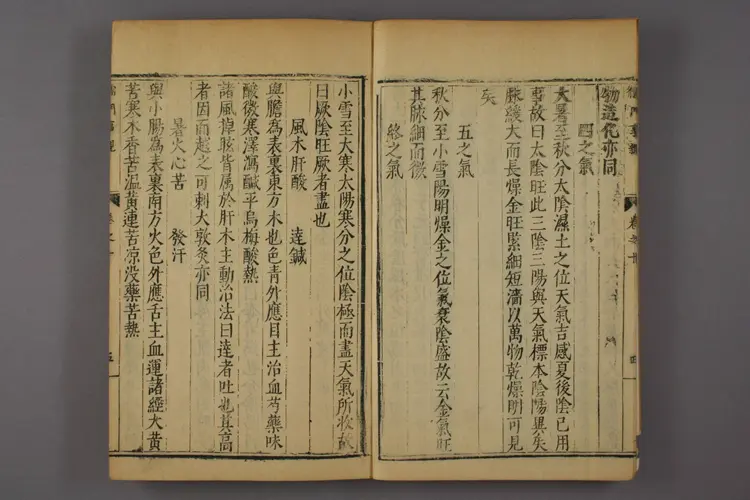 物造化亦同
四之氣
大暑至秋分大陰濕土之位天氣吉感夏後陰已用
事故曰太陰旺此三陰三陽與天氣標本陰陽異矣
脉緩大而長燥金旺緊細短濇以萬物乾燥明可見
矣
五之氣
秋分至小雪陽明燥金之位氣衰陰盛故云金氣旺
其脉細而微
終之氣
小雪至大寒太陽寒分之位陰極而盡天氣所收故
曰厥陰旺厥者盡也
風木肝酸 達鍼
與膽為表裏東方木也色青外應目主治血芍藥味
酸微寒澤瀉鹹平烏梅酸熱
諸風掉眩皆属於肝木主動治法曰達者吐也其高
者因而越之可刺大敦灸亦同
暑火心苦 發汗
與小腸為表裏南方火色外應舌主血運諸經大黃
苦寒木香苦溫黃連苦凉没藥苦熱